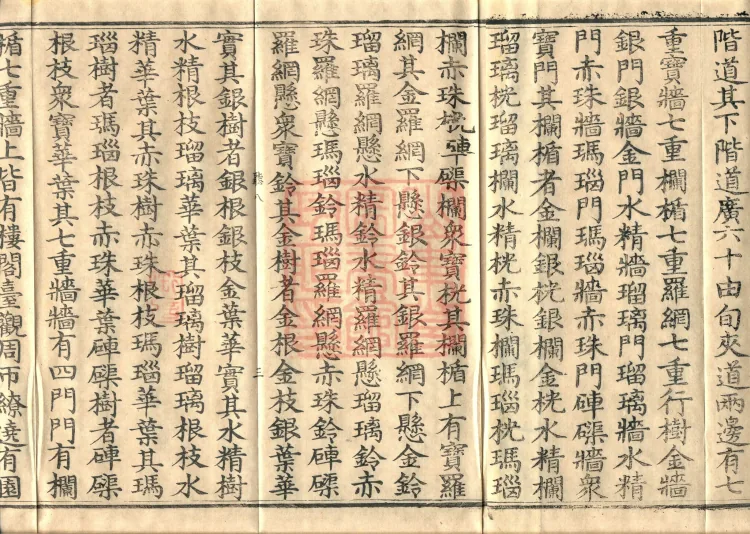 階道其下階道廣六十由旬夾道兩邊有七
重寶牆七重欄楯七重羅網七重行樹金牆
銀門銀牆金門水精牆瑠璃門瑠璃牆水精
門赤珠牆瑪瑙門瑪瑙牆赤珠門硨磲牆衆
寶門其欄楯者金欄銀桄銀欄金桄水精欄
瑠璃桄瑠璃欄水精桄赤珠欄瑪瑙桄瑪瑙
欄赤珠桄硨磲欄衆寶桄其欄楯上有寶羅
網其金羅網下懸銀鈴其銀羅網下懸金鈴
瑠璃羅網懸水精鈴水精羅網懸瑠璃鈴赤
珠羅網懸瑪瑙鈴瑪瑙羅網懸赤珠鈴硨磲
羅網懸衆寶鈴其金樹者金根金枝銀葉華
八 三
實其銀樹者銀根銀枝金葉華實其水精樹
水精根枝瑠璃華葉其瑠璃樹瑠璃根枝水
精華葉其赤珠樹赤珠根枝瑪瑙華葉其瑪
瑙樹者瑪瑙根枝赤珠華葉硨磲樹者硨磲
根枝衆寶華葉其七重牆牆有四門門有欄
楯七重牆上皆有樓閣臺觀周帀繚繞有園